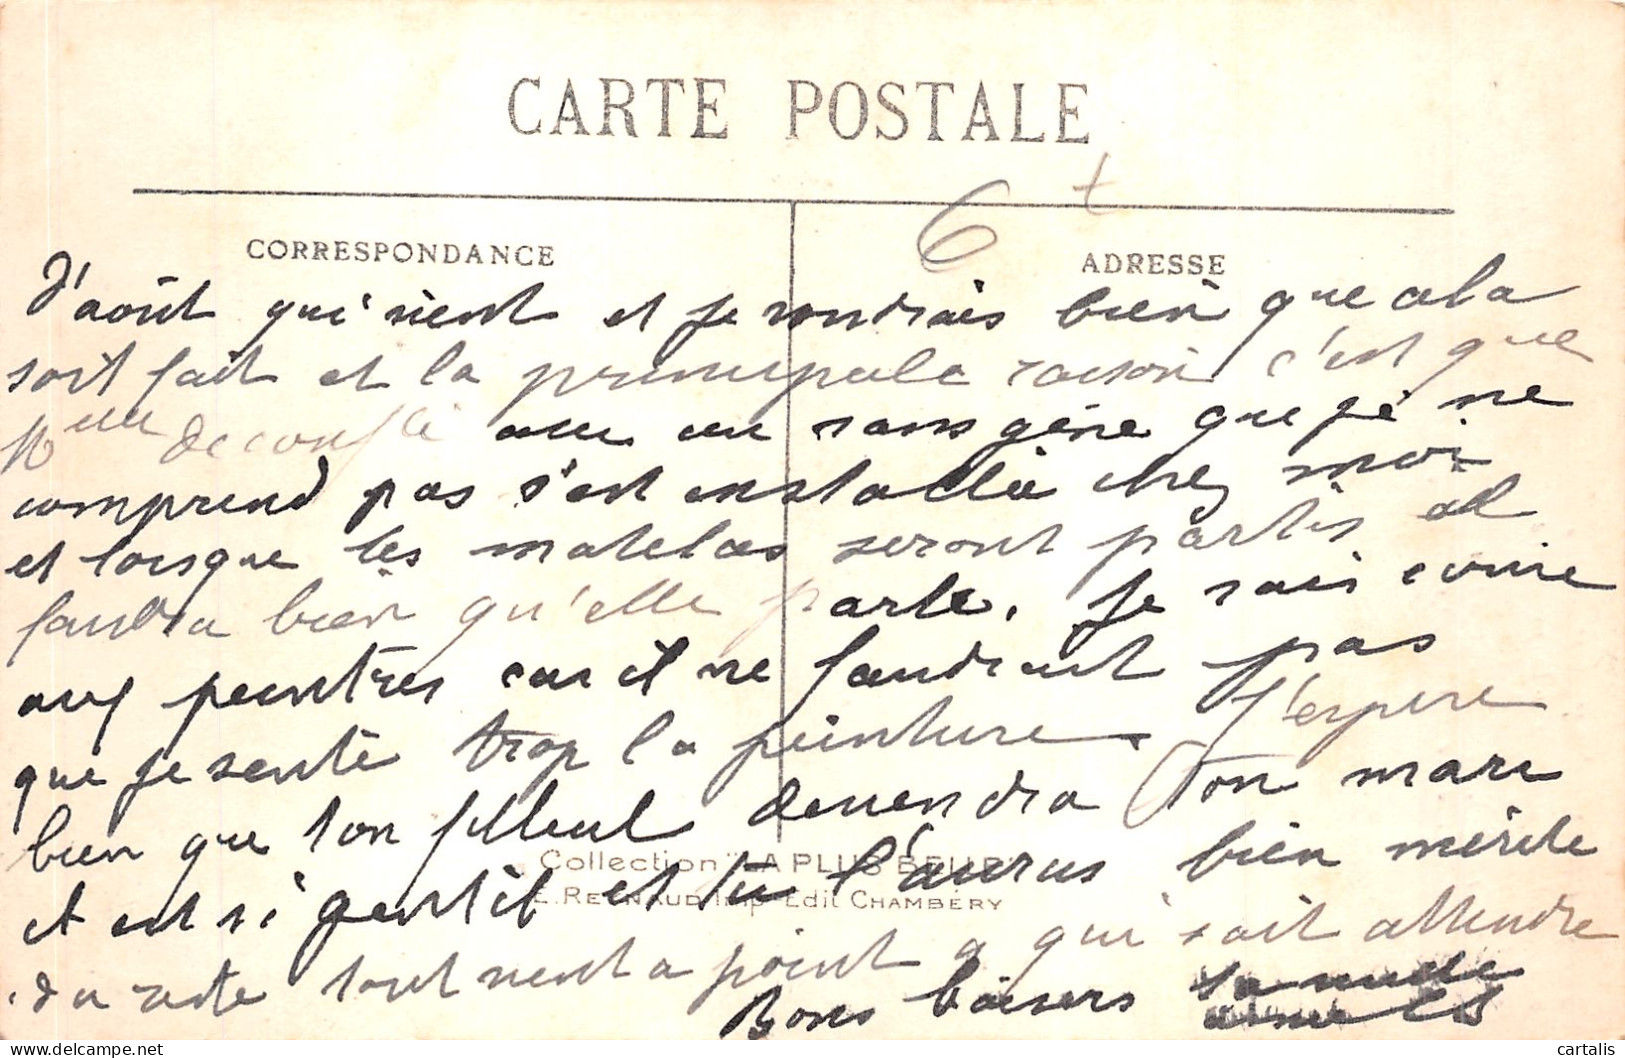 CARTE POSTALE
6 t
CORRESPONDANCE
ADRESSE
d'août qui vient et je voudrais bien que cela
soit fait et la principale raison c'est que
Melle avec un sans gêne que je ne
comprend pas s'est installée chez moi
et lorsque les matelas seront partis il
faudra bien qu'elle parte. Je vais écrire
aux peintres car il ne faudrait pas
que je sente trop la peinture. J'espère
bien que ton filleul deviendra ton mari
Collection "LA PLUS BELLE"
et est si gentil et tu l'auras bien mérité
E. REYNAUD Imp-Edit CHAMBÉRY
du reste tout vient a point a qui sait attendre
Bons baisers
cartalis